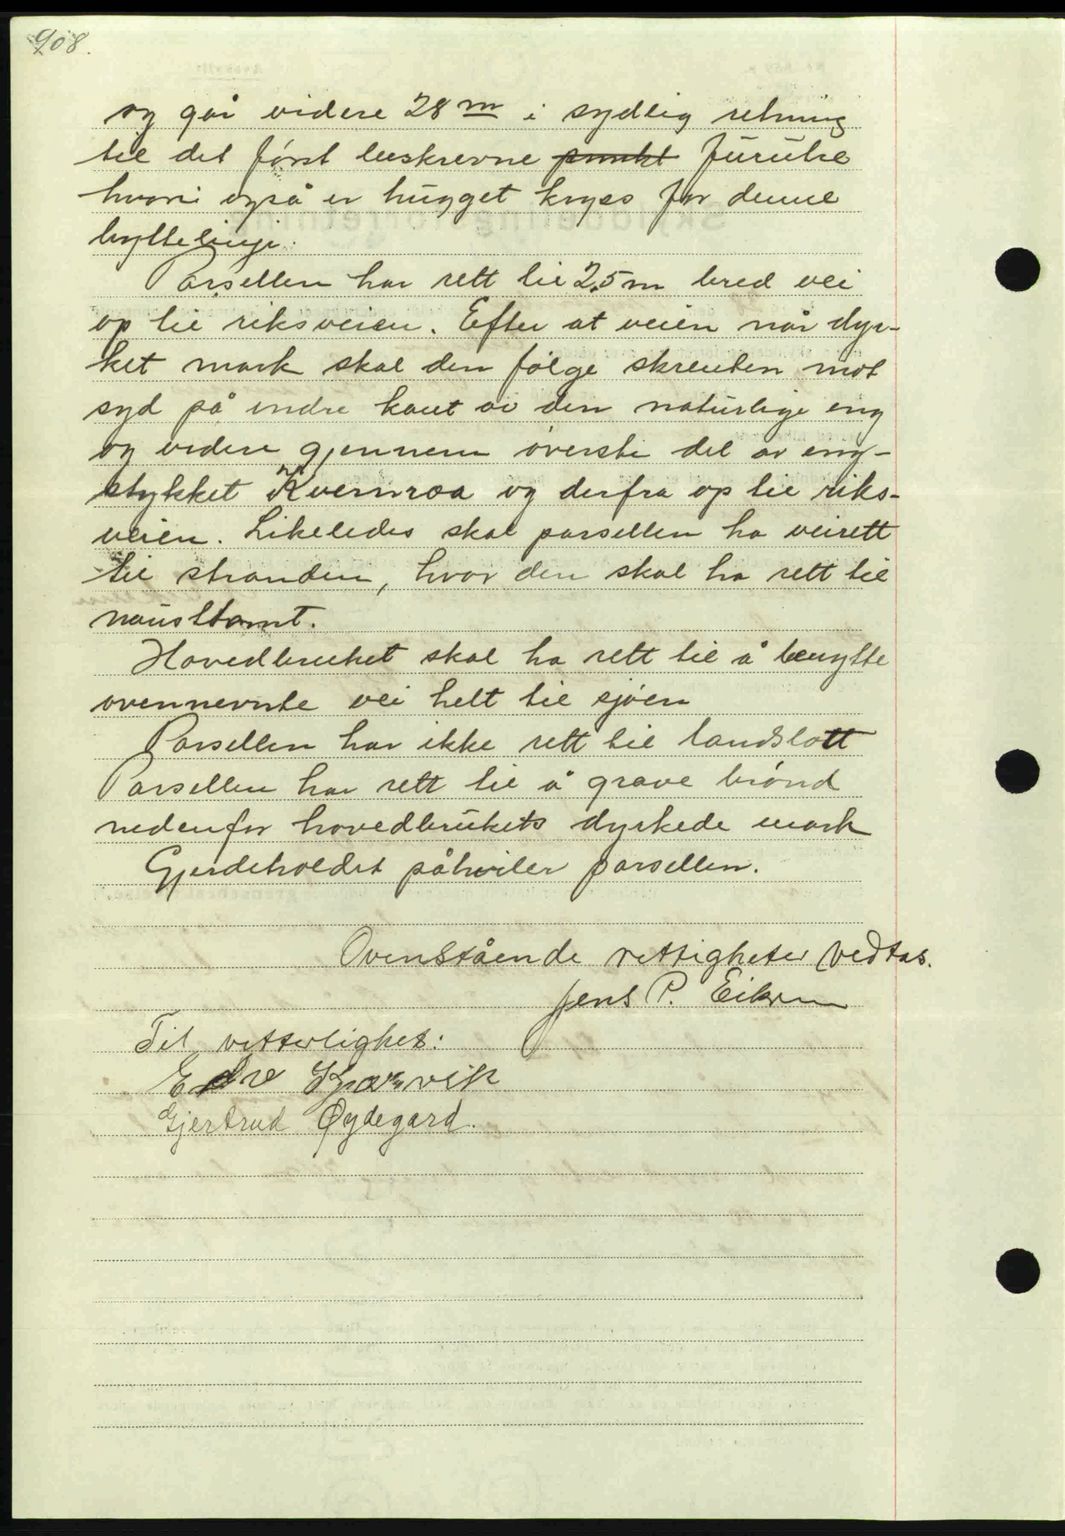 908.
og går videre 28 m i sydlig retning
til det først beskrevne punkt furutre
hvori også er hugget kryss for denne
byttelinje.
Parsellen har rett til 2,5 m bred vei
op til riksveien. Efter at veien når dyr-
ket mark skal den følge skrenten mot
syd på indre kant av den naturlige eng
og videre gjennem øverste del av eng-
stykket Kvernroa og derfra op til riks-
veien. Likeledes skal parsellen ha veirett
til stranden, hvor den skal ha rett til
nausttomt.
Hovedbruket skal ha rett til å benytte
ovennevnte vei helt til sjøen
Parsellen har ikke rett til landslott
Parsellen har rett til å grave brønd
nedenfor hovedbrukets dyrkede mark
Gjerdeholdet påhviler parsellen.
Ovenstående rettigheter vedtas.
Jens P. Eikrem
Til vitterlighet:
Gjertrud Øydegard.